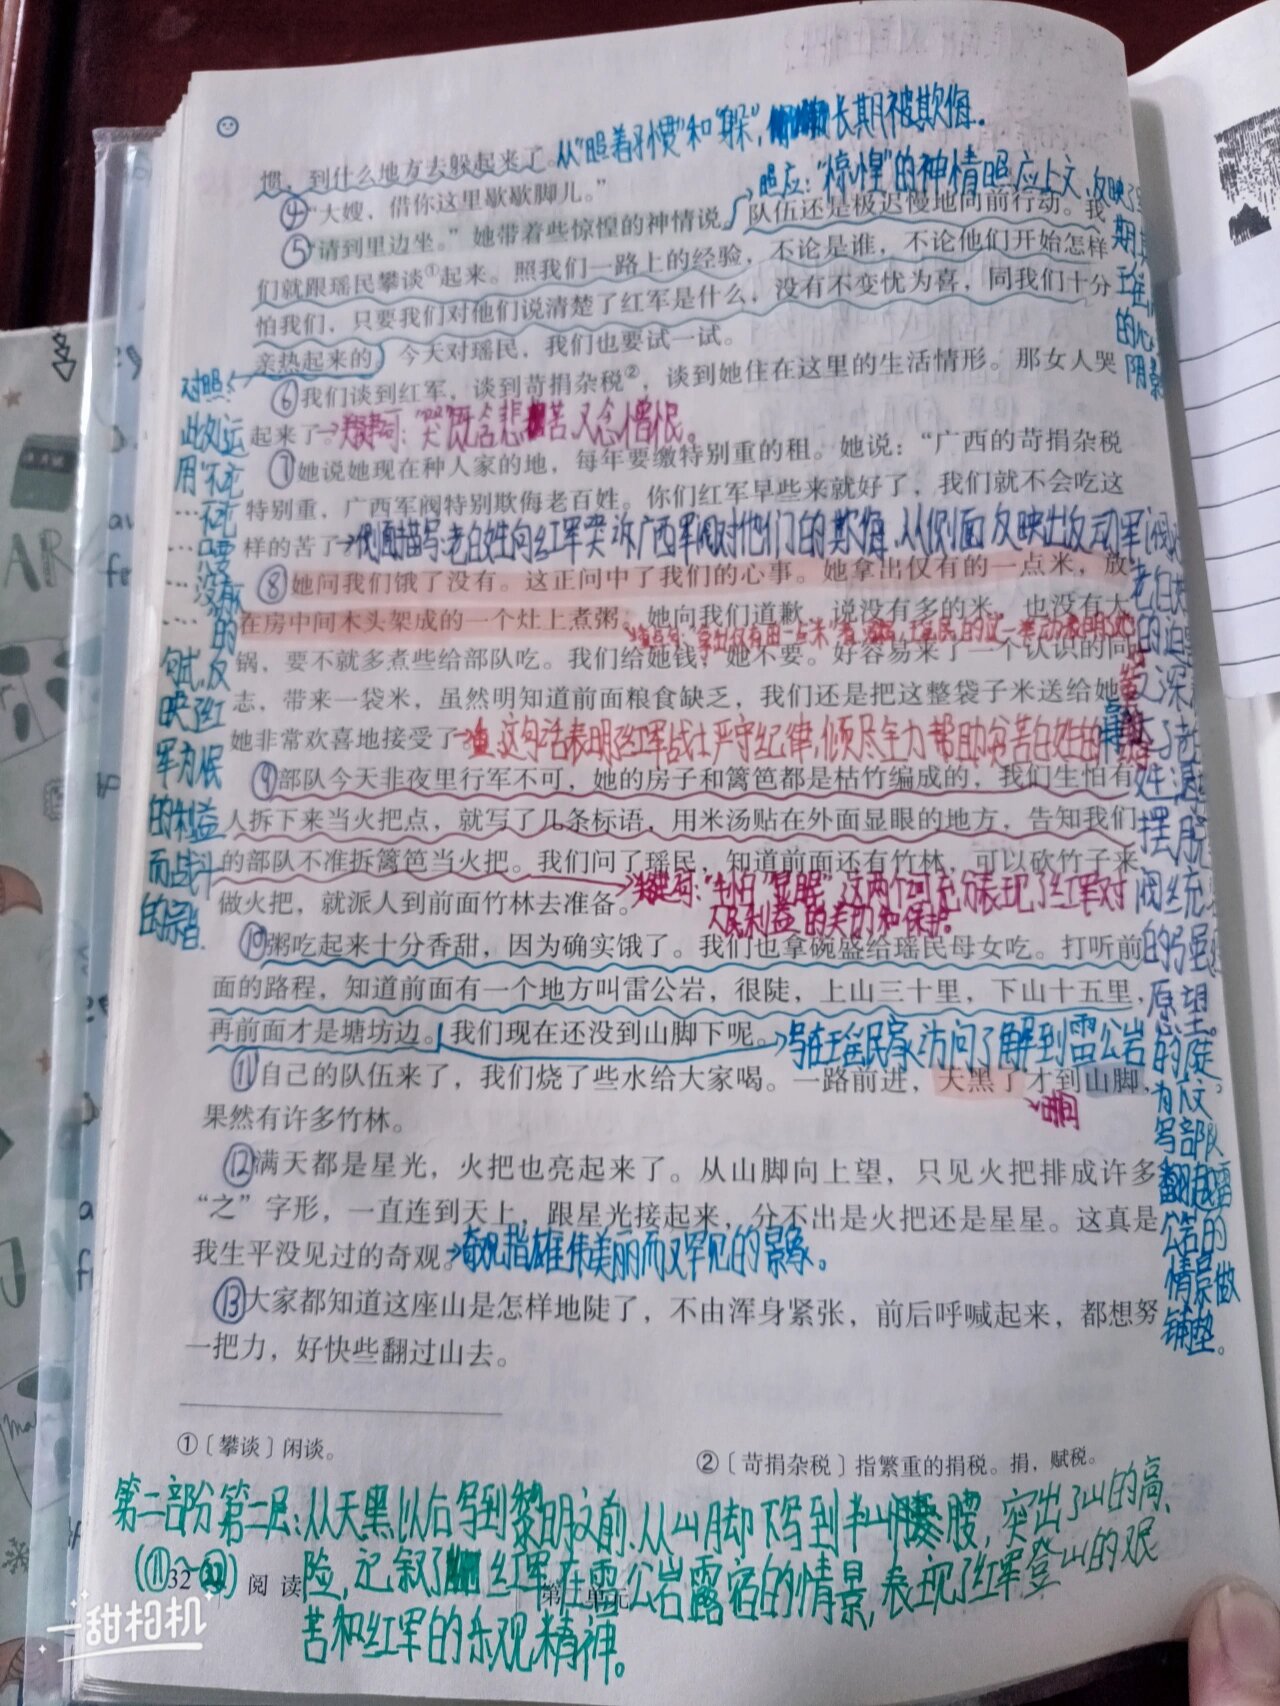 惯，到什么地方去躲起来了。从“照着习惯”和“躲”，长期被欺侮.
④“大嫂，借你这里歇歇脚儿。”
照应：“惊惶”的神情照应上文，反映了
⑤“请到里边坐。”她带着些惊惶的神情说。队伍还是极迟慢地向前行动。我
们就跟瑶民攀谈①起来。照我们一路上的经验，不论是谁，不论他们开始怎样
怕我们，只要我们对他们说清楚了红军是什么，没有不变忧为喜，同我们十分
亲热起来的。今天对瑶民，我们也要试一试。
的心
阴影
⑥我们谈到红军，谈到苛捐杂税②，谈到她住在这里的生活情形。那女人哭
起来了。关键词：“哭”既含悲苦又含憎恨。
⑦她说她现在种人家的地，每年要缴特别重的租。她说：“广西的苛捐杂税
特别重，广西军阀特别欺侮老百姓。你们红军早些来就好了，我们就不会吃这
样的苦了。”侧面描写：老百姓向红军哭诉广西军阀对他们的欺侮，从侧面反映出反动军阀
⑧她问我们饿了没有。这正问中了我们的心事。她拿出仅有的一点米，放
在房中间木头架成的一个灶上煮粥。她向我们道歉，说没有多的米，也没有大
锅，要不就多煮些给部队吃。我们给她钱，她不要。好容易来了一个认识的同
志，带来一袋米，虽然明知道前面粮食缺乏，我们还是把这整袋子米送给她，
她非常欢喜地接受了。这句话表明红军战士严守纪律，倾尽全力帮助穷苦百姓的
⑨部队今天非夜里行军不可，她的房子和篱笆都是枯竹编成的，我们生怕有
人拆下来当火把点，就写了几条标语，用米汤贴在外面显眼的地方，告知我们
的部队不准拆篱笆当火把。我们问了瑶民，知道前面还有竹林，可以砍竹子来
做火把，就派人到前面竹林去准备。关键词：“生怕”“显眼”这两个词充分表现了红军对
人民利益的关切和保护。
⑩粥吃起来十分香甜，因为确实饿了。我们也拿碗盛给瑶民母女吃。打听前
面的路程，知道前面有一个地方叫雷公岩，很陡，上山三十里，下山十五里，
再前面才是塘坊边。我们现在还没到山脚下呢。写在瑶民家访问了解到雷公岩
⑪自己的队伍来了，我们烧了些水给大家喝。一路前进，天黑了才到山脚，
时间
果然有许多竹林。
⑫满天都是星光，火把也亮起来了。从山脚向上望，只见火把排成许多
“之”字形，一直连到天上，跟星光接起来，分不出是火把还是星星。这真是
我生平没见过的奇观。奇观指雄伟美丽而又罕见的景象。
⑬大家都知道这座山是怎样地陡了，不由浑身紧张，前后呼喊起来，都想努
一把力，好快些翻过山去。
对照：
此处运
用“不论
…不论
…只要
…没有
…”的
句式，反
映了红
军为人民
的利益
而战斗
的宗旨.
姓渴望
摆脱
的强烈
愿望。
的陡，
为后文
写部队
翻越雷
公岩的
情景做
铺垫。
①〔攀谈〕闲谈。
②〔苛捐杂税〕指繁重的捐税。捐，赋税。
第二部分第二层：从天黑以后写到黎明之前，从山脚下写到半山腰，突出了山的高、
险，记叙了红军在雷公岩露宿的情景，表现了红军登山的艰
苦和红军的乐观精神。
32 阅读 第二单元
一甜相机